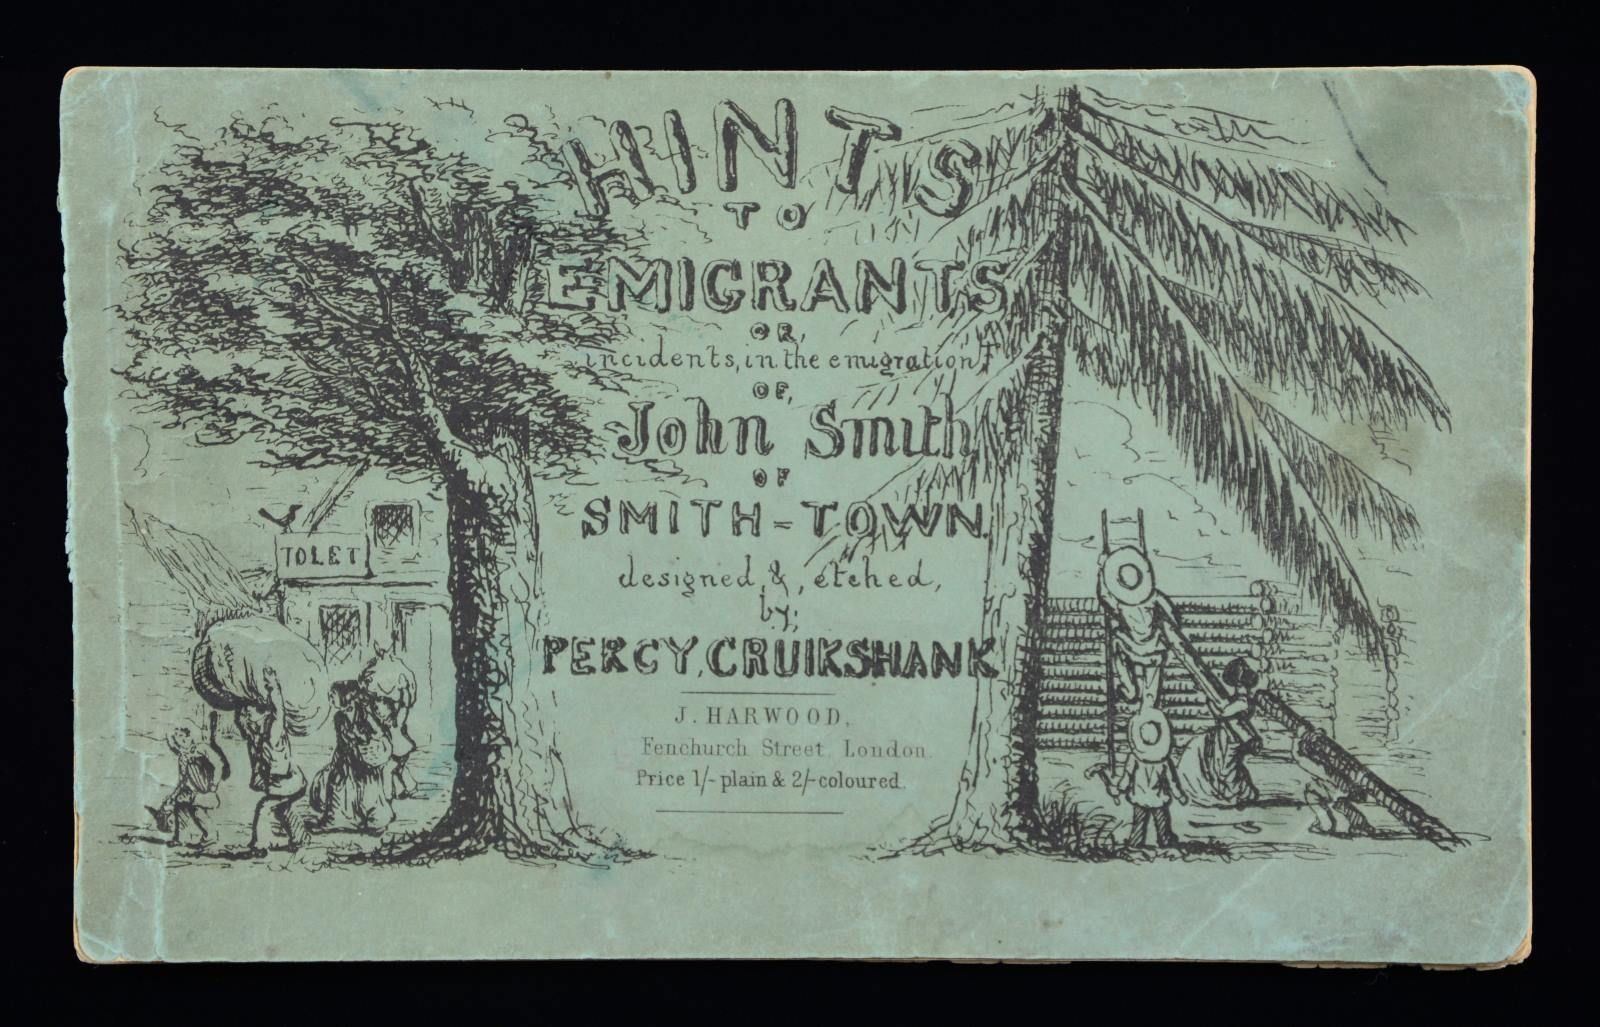 HINTS
TO
EMIGRANTS
OR,
incidents, in the emigration
OF,
John Smith
OF
SMITH-TOWN.
designed & etched,
by;
PERCY, CRUIKSHANK
J. HARWOOD,
Fenchurch Street, London.
Price 1/- plain & 2/- coloured.
TO LET